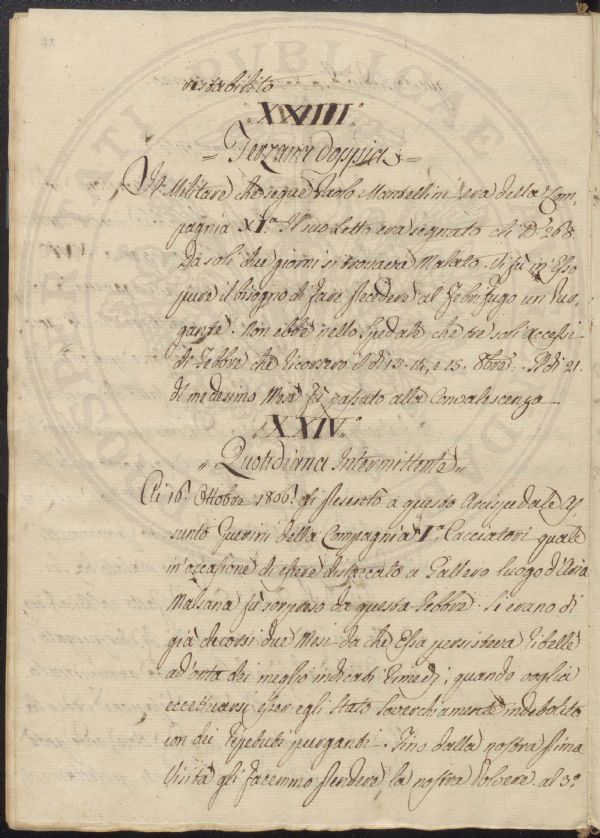 ristabilito
"XXIIII°
= Terzana doppia =
Il Militare che segue Paolo Mandellini era della Com-
pagnia XI.a Il suo Letto era segnato di N.° 268.
Da soli due giorni si trovava Malato. Vi fù in Esso
pure il bisogno di fare precedere al Febrifugo un Pur-
gante. Non ebbe nello Spedale che tre soli accessi
di Febbre che ricorsero il dì 13. 14, e 15. 8bre. Il dì 21.
di medesimo Mese fù passato alla Convalescenza
"XXIV"°
" Quotidiana Intermittente "
Li 16. Ottobre 1806. si presentò a questo Arcispedale
sunto Guerini della Compagnia I.a Cacciatori quale
in occasione di essere distaccato a Pallero luogo d'Aria
Malsana fù sorpreso da questa Febbre. Si erano di
già decorsi due Mesi da che Essa persisteva ribelle
ad onta dei meglio indicati Rimedj; quando voglia
eccettuarsi esser egli stato soverchiamente indebolito
con dei ripetuti purganti. Fino dalla nostra prima
Visita gli facemmo prendere la nostra Polvere. al 3°